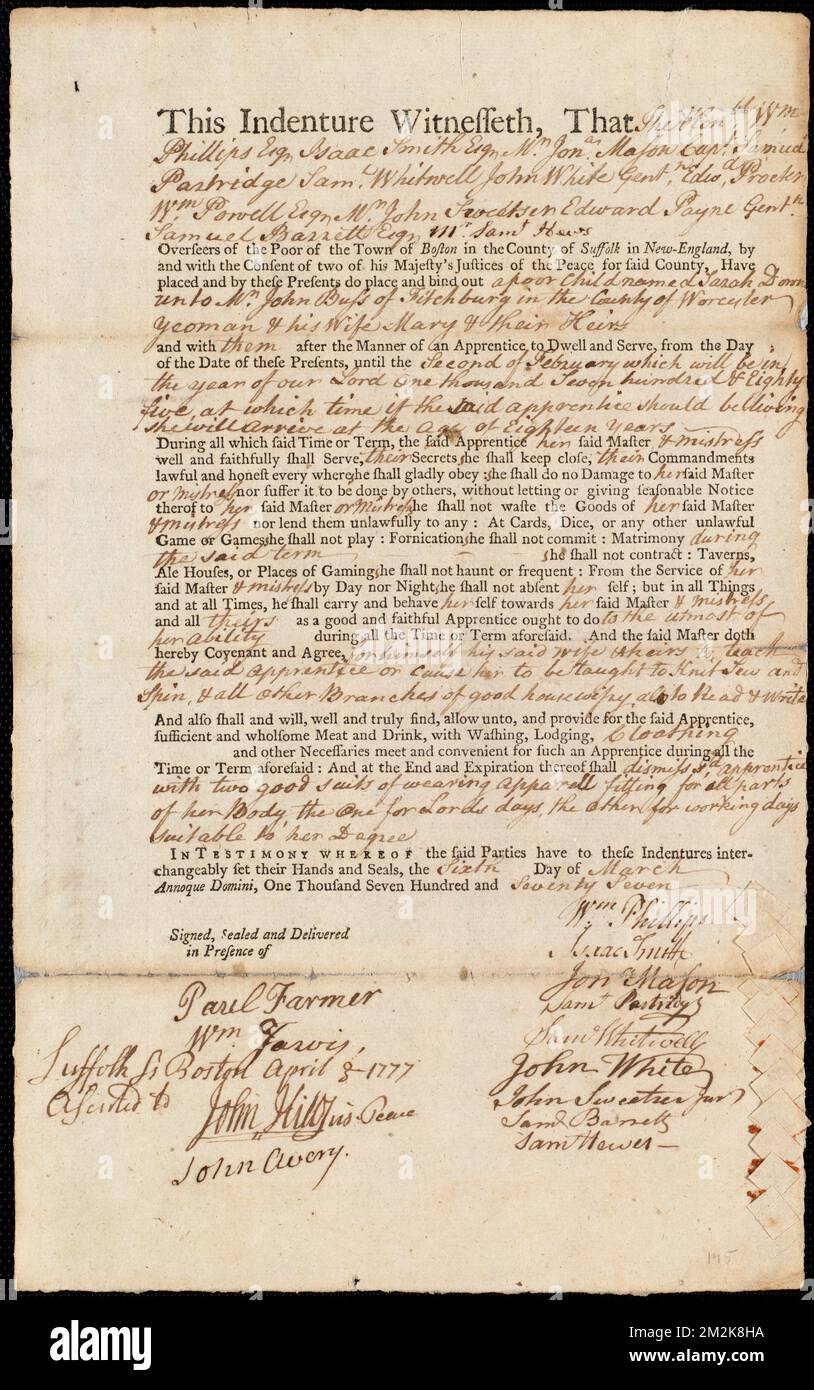 This Indenture Witnesseth, That
Phillips Esqr Isaac Smith Esqr Mr Jonan Mason Capt Samuel
Partridge Saml Whitwell John White Gentn Edwd Procter
Wm Powell Esqr Mr John Sweetser Edward Payne Gentn
Samuel Barrett Esqr Mr Saml Hews
Overseers of the Poor of the Town of Boston in the County of Suffolk in New-England, by
and with the Consent of two of his Majesty's Justices of the Peace for said County, Have
placed and by these Presents do place and bind out a poor Child named Sarah Down
unto Mr John Buss of Fitchburg in the County of Worcester
Yeoman & his Wife Mary & their Heirs
and with them after the Manner of an Apprentice to Dwell and Serve, from the Day
of the Date of these Presents, until the Second of February which will be in
the year of our Lord One thousand Seven hundred & Eighty
five, at which time if the said apprentice should be living
she will arrive at the Age of Eighteen Years
During all which said Time or Term, the said Apprentice her said Master & mistress
well and faithfully shall Serve, their Secrets she shall keep close, their Commandments
lawful and honest every where she shall gladly obey: she shall do no Damage to her said Master
or Mistress nor suffer it to be done by others, without letting or giving seasonable Notice
therof to her said Master or Mistress she shall not waste the Goods of her said Master
& mistress nor lend them unlawfully to any: At Cards, Dice, or any other unlawful
Game or Games she shall not play: Fornication she shall not commit: Matrimony during
the said term she shall not contract: Taverns,
Ale Houses, or Places of Gaming she shall not haunt or frequent: From the Service of her
said Master & mistress by Day nor Night she shall not absent her self; but in all Things
and at all Times, he shall carry and behave her self towards her said Master & mistress
and all theirs as a good and faithful Apprentice ought to do to the utmost of
her ability during all the Time or Term aforesaid. And the said Master doth
hereby Covenant and Agree, for himself his said Wife & heirs to teach
the said Apprentice or cause her to be taught to Knit Sew and
Spin, & all other Branches of good housewifry, also to Read & Write
And also shall and will, well and truly find, allow unto, and provide for the said Apprentice,
sufficient and wholsome Meat and Drink, with Washing, Lodging, Cloathing
and other Necessaries meet and convenient for such an Apprentice during all the
Time or Term aforesaid: And at the End and Expiration thereof shall dismiss sd apprentice
with two good suits of wearing apparell fitting for all parts
of her Body, the One for Lords days, the other for working days
suitable to her Degree
IN TESTIMONY WHEREOF the said Parties have to these Indentures inter-
changeably set their Hands and Seals, the Sixth Day of March
Annoque Domini, One Thousand Seven Hundred and Seventy Seven
Wm Phillips
Signed, Sealed and Delivered
in Presence of
Isaac Smith
Jon Mason
Saml Partridge
Pazel Farmer
Wm Jarvis,
Saml Whitwell
Suffolk Ss Boston April 8 1777
John White
Assented to
John Hill Jus Peace
John Sweetser Junr
Saml Barrett
Saml Hewes
John Avery.
145
alamy
Image ID: 2M2K8HA
www.alamy.com